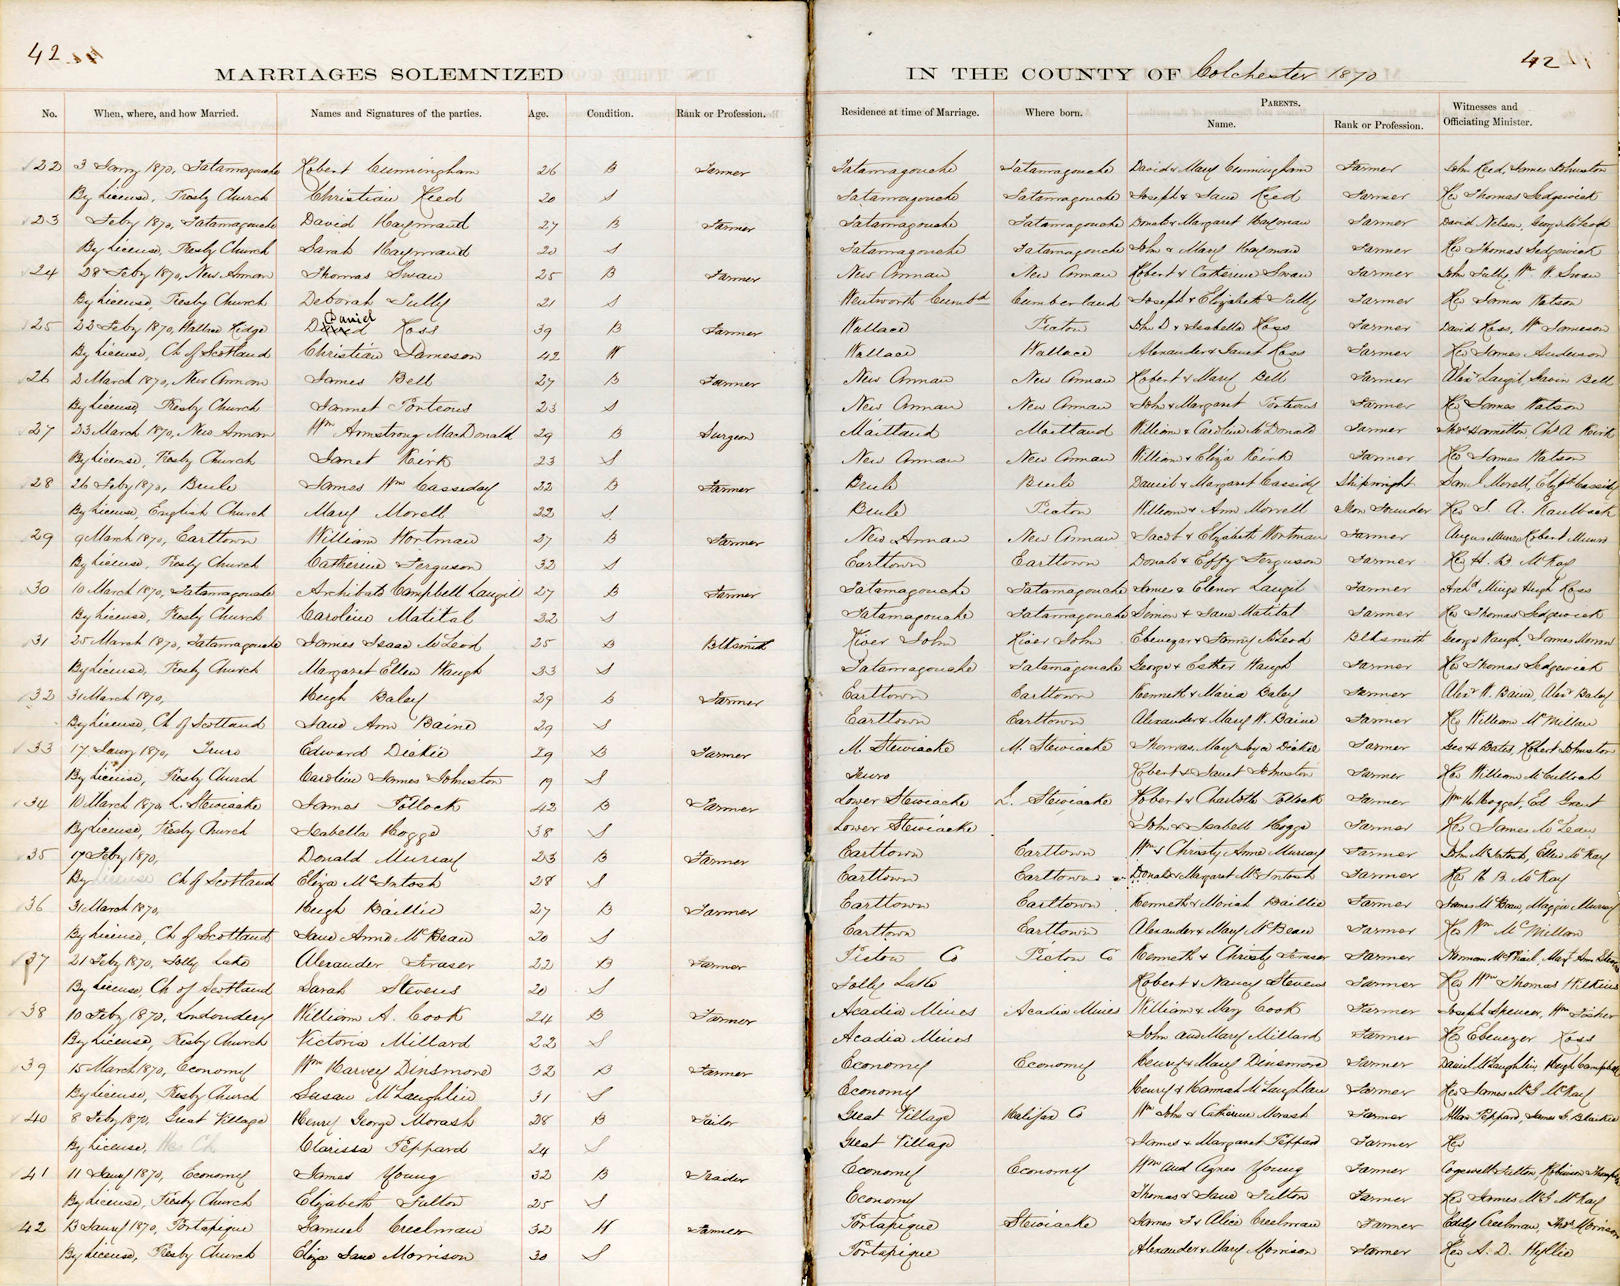 42
42
MARRIAGES SOLEMNIZED IN THE COUNTY OF Colchester 1870
No. When, where, and how Married. Names and Signatures of the parties. Age. Condition. Rank or Profession. Residence at time of Marriage. Where born. PARENTS. Name. Rank or Profession. Witnesses and Officiating Minister.
22 3 Janry 1870, Tatamagouche Robert Cunningham 26 B Farmer Tatamagouche Tatamagouche David & Mary Cunningham Farmer John Reed, James Johnston
By License, Presby Church Christian Reed 20 S Tatamagouche Tatamagouche Joseph & Jane Reed Farmer Rev Thomas Sedgewick
23 Feby 1870, Tatamagouche David Hayman 27 B Farmer Tatamagouche Tatamagouche Donald & Margaret Hayman Farmer David Nelson, George McLeod
By License, Presby Church Sarah Hayman 20 S Tatamagouche Tatamagouche John & Mary Hayman Farmer Rev Thomas Sedgewick
24 28 Feby 1870, New Annan Thomas Swan 25 B Farmer New Annan New Annan Robert & Catherine Swan Farmer John Tully Wm W. Swan
By License, Presby Church Deborah Tully 21 S Wentworth Cumbd Cumberland Joseph & Elizabeth Tully Farmer Rev James Watson
25 22 Feby 1870, Wallace Ridge Daniel Ross 39 B Farmer Wallace Picton John D & Isabella Ross Farmer David Ross, Wm Jameson
By License, Ch of Scotland Christian Jameson 42 W Wallace Wallace Alexander & Janet Ross Farmer Rev James Anderson
26 2 March 1870, New Annan James Bell 27 B Farmer New Annan New Annan Robert & Mary Bell Farmer Alexr Langil, Gavin Bell
By License, Presby Church Jannet Porteous 23 S New Annan New Annan John & Margaret Porteous Farmer Rev James Watson
27 23 March 1870, New Annan Wm Armstrong MacDonald 29 B Surgeon Maitland Maitland William & Caroline McDonald Farmer Chs A Keirk
By License, Presby Church Janet Keirk 23 S New Annan New Annan William & Eliza Keirk Farmer Rev James Watson
28 26 Feby 1870, Brule James Wm Cassiday 22 B Farmer Brule Brule Daniel & Margaret Cassidy Shipwright Saml Morell, Cassidy
By License, English Church Mary Morell 22 S Brule Picton William & Ann Morrell Iron Founder Rev J. A. Kaulbach
29 9 March 1870, Earltown William Wortman 27 B Farmer New Annan New Annan Jacob & Elizabeth Wortman Farmer Angus Munro Robert Munro
By License, Presby Church Catherine Ferguson 32 S Earltown Earltown Donald & Effy Ferguson Farmer Rev H. B McKay
30 10 March 1870, Tatamagouche Archibald Campbell Langil 27 B Farmer Tatamagouche Tatamagouche James & Elenor Langil Farmer Archd Mingo Hugh Ross
By License, Presby Church Caroline Matital 22 S Tatamagouche Tatamagouche Simon & Jane Matital Farmer Rev Thomas Sedgewick
31 25 March 1870, Tatamagouche James Isaac McLeod 25 B Blksmith River John River John Ebenezar & Nancy McLeod Blksmith George Waugh, James Moran
By License, Presby Church Margaret Ellen Waugh 23 S Tatamagouche Tatamagouche George & Esther Waugh Farmer Rev Thomas Sedgewick
32 31 March 1870, Hugh Baley 29 B Farmer Earltown Earltown Kenneth & Maria Baley Farmer Alexr W. Baine, Alexr Baley
By License, Ch of Scotland Jane Ann Baine 29 S Earltown Earltown Alexander & Mary W. Baine Farmer Rev William McMillan
33 17 Janry 1870, Truro Edward Dickie 29 B Farmer M. Stewiacke M. Stewiacke Thomas, Mary Dickie Farmer Geo H Bates, Robert Johnston
By License, Presby Church Caroline James Johnston 19 S Truro Robert & Janet Johnston Farmer Rev William McCulloch
34 10 March 1870 L. Stewiacke James Pollock 42 B Farmer Lower Stewiacke L. Stewiacke Robert & Charlotte Pollock Farmer Wm H Hogget, Ed Grant
By License, Presby Church Isabella Hogge 38 S Lower Stewiacke John & Isabell Hogge Farmer Rev James McLean
35 17 Feby 1870, Donald Murray 23 B Farmer Earltown Earltown Wm & Christy Anne Murray Farmer John McIntosh, Ellen McKay
By License Ch of Scotland Eliza McIntosh 28 S Earltown Earltown Donald & Margaret McIntosh Farmer Rev H B. McKay
36 31 March 1870, Hugh Baillie 27 B Farmer Earltown Earltown Kenneth & Moriah Baillie Farmer James McBean, Maggie Murray
By License, Ch of Scotland Jane Anne McBean 20 S Earltown Earltown Alexander & Mary McBean Farmer Rev Wm McMillan
37 21 Feby 1870, Folly Lake Alexander Fraser 22 B Farmer Picton Co Picton Co Kenneth & Christy Fraser Farmer Norman McPhail, Mary Ann Stevens
By License, Ch of Scotland Sarah Stevens 20 S Folly Lake Robert & Nancy Stevens Farmer Rev Wm Thomas Wilkins
38 10 Feby 1870, Londondery William A. Cook 24 B Farmer Acadia Mines Acadia Mines William & Mary Cook Farmer Joseph Spencer, Wm Fisher
By License, Presby Church Victoria Millard 22 S Acadia Mines John and Mary Millard Farmer Rev Ebenezer Ross
39 15 March 1870, Economy Wm Harvey Dinsmore 32 B Farmer Economy Economy Henry & Mary Dinsmore Farmer Daniel McLaughlin, Hugh Campbell
By License, Presby Church Susan McLaughlin 31 S Economy Henry & Hannah McLaughlan Farmer Rev James McG McKay
40 8 Feby 1870, Great Village Henry George Morash 28 B Tailor Great Village Halifax Co Wm John & Catherine Morash Farmer Allan Peppard, James F. Blaikie
By License, Wes Ch Clarissa Peppard 24 S Great Village James & Margaret Peppard Farmer Rev
41 11 Janry 1870, Economy James Young 32 B Trader Economy Economy Wm and Agnes Young Farmer Cogswell Fulton, Robinson Thompson
By License, Presby Church Elizabeth Fulton 25 S Economy Thomas & Jane Fulton Farmer Rev James McG McKay
42 13 Janry 1870, Portapique Samuel Creelman 32 W Farmer Portapique Stewiacke James F & Alice Creelman Farmer Eddy Creelman, Thos Morrison
By License, Presby Church Eliza Jane Morrison 30 S Portapique Alexander & Mary Morrison Farmer Rev A. D. Wyllie